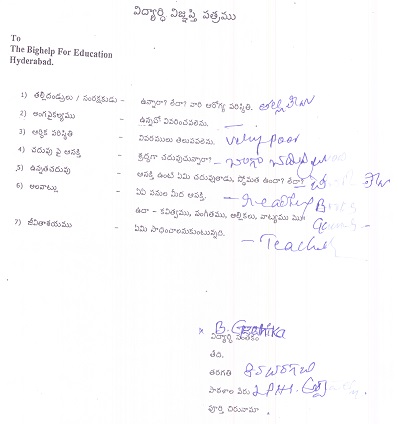 విద్యార్ధి విజ్ఞప్తి పత్రము
To
The Bighelp For Education
Hyderabad.
1) తల్లిదండ్రులు / సంరక్షకుడు - ఉన్నారా? లేదా? వారి ఆరోగ్య పరిస్థితి. తల్లి లేదు
2) అంగవైకల్యము - ఉన్నచో వివరించవలెను.
3) ఆర్థిక పరిస్థితి - వివరములు తెలుపవలెను. Very poor
4) చదువు పై ఆసక్తి - శ్రద్ధగా చదువుచున్నారా? -
5) ఉన్నతచదువు - ఆసక్తి ఉంటే ఏమి చదువుతాడు, స్తోమత ఉందా? లేదా? - లేదు
6) అలవాట్లు - ఏఏ పనుల మీద ఆసక్తి. - Reading Books
ఉదా - కవిత్వము, సంగీతము, అల్లికలు, నాట్యము Games -
7) జీవితాశయము - ఏమి సాధించాలనుకుంటున్నది. - Teacher
x B. Geethika
విద్యార్ధి సంతకం
తేది.
తరగతి
పాఠశాల పేరు ZPHS.
పూర్తి చిరునామా